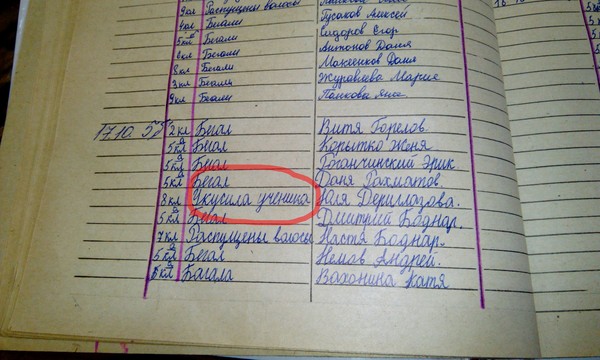 9кл Распущены волосы
4кл Бегали Гусаков Алексей
5кл Бегали Сидоров Егор
6кл Бегали Антонов Даня
8кл Бегали Моксенков Даня
3кл Бегали Журавлева Мария
9кл Бегали Панкова
17.10. 5"б" 2кл Бегал Витя Горелов.
5кл Бегал Корытко Женя
5кл Бегал Роганчинский Эрик
5кл Бегал Даня Рахматов.
8кл Укусила ученика Юля Дериглазова.
5кл Бегал Дмитрий Боднар.
7кл Распущены валосы Настя Боднар.
5кл Бегал Немов Андрей.
6кл Багала Вахонина Катя